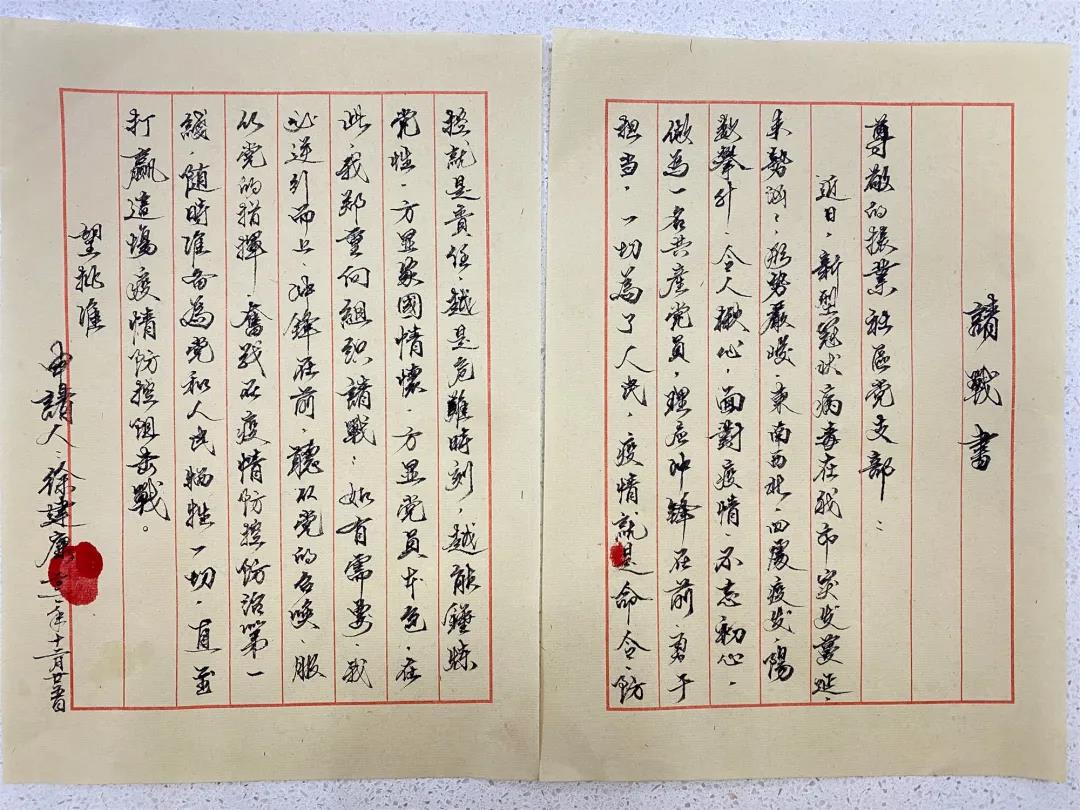 請戰書
尊敬的振業社區党支部：
近日，新型冠状病毒在我市突发蔓延，
来勢汹汹，形势嚴峻，東南西北，四處疫发，陽
数攀升，令人揪心，面對疫情，不忘初心，
做為一名共產党員，理应冲鋒在前，勇于
担当，一切為了人民，疫情就是命令，防
控就是責任，越是危難時刻，越能錘炼
党性，方显家國情懷，方显党員本色，在
此，我郑重向組织請戰：如有需要，我
必逆行而上，冲鋒在前，聽从党的召唤，服
从党的指揮，奮战在疫情防控防治第一
綫，随時准备為党和人民牺牲一切，直至
打赢這場疫情防控阻击戰。
望批准
申請人：徐建康 年十二月廿五日